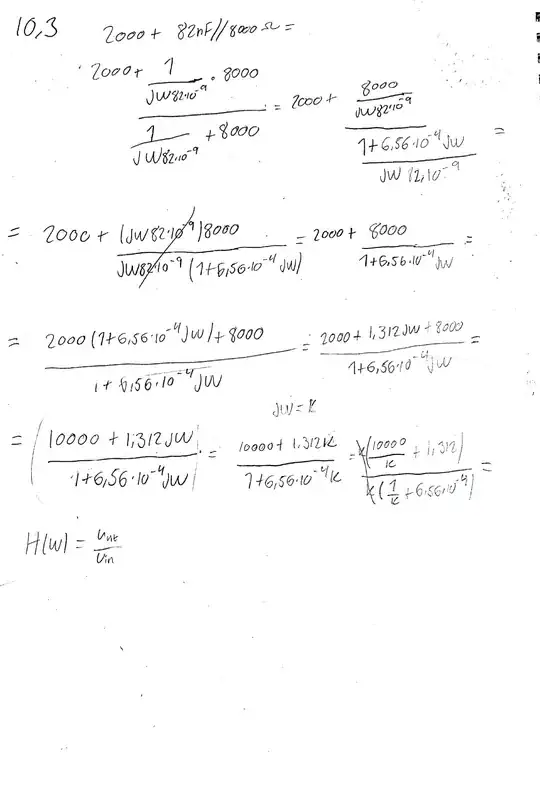 10,3 2000 + 82nF//8000Ω =
2000 + \frac{\frac{1}{jW82·10^{-9}} · 8000}{\frac{1}{jW82·10^{-9}} + 8000} = 2000 + \frac{\frac{8000}{jW82·10^{-9}}}{\frac{1+6,56·10^{-4}jW}{jW82,10^{-9}}} =
= 2000 + \frac{(jW82·10^{-9})8000}{jW82·10^{-9}(1+6,56·10^{-4}jW)} = 2000 + \frac{8000}{1+6,56·10^{-4}jW} =
= \frac{2000(1+6,56·10^{-4}jW)+8000}{1+6,56·10^{-4}jW} = \frac{2000+1,312jW+8000}{1+6,56·10^{-4}jW} =
jW = K
= |\frac{10000+1,312jW}{1+6,56·10^{-4}jW}| = \frac{10000+1,312K}{1+6,56·10^{-4}K} = \frac{K(\frac{10000}{K}+1,312)}{K(\frac{1}{K}+6.56·10^{-4})} =
H(W) = \frac{Uut}{Uin}